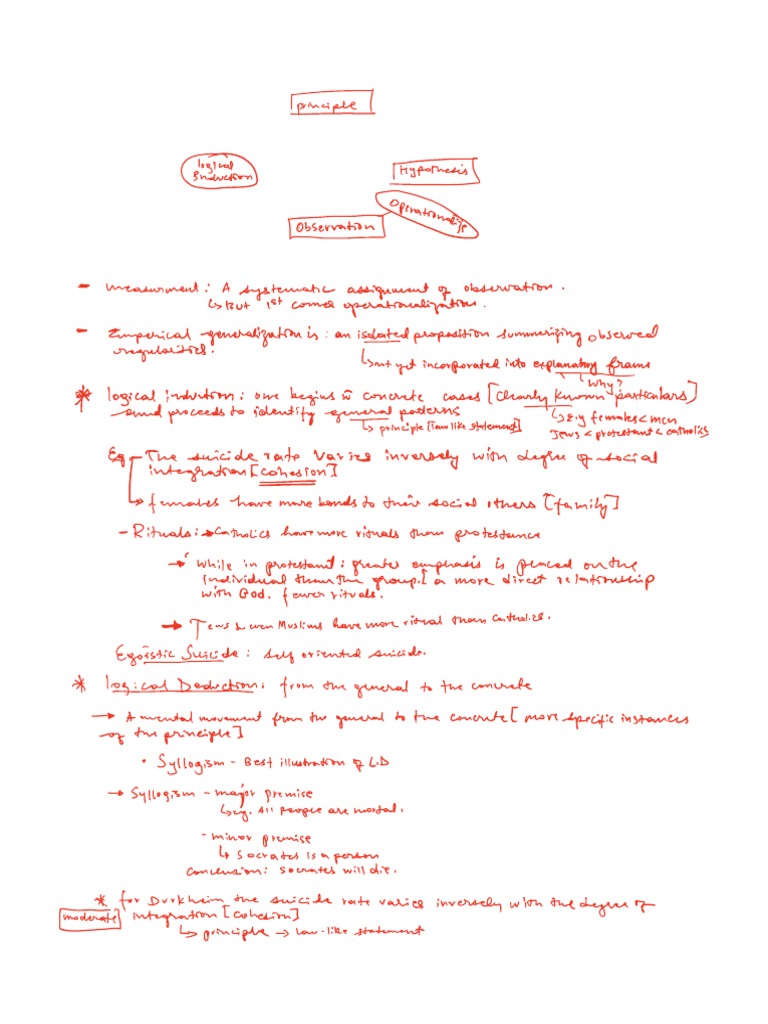 principle
logical
Induction
Hypothesis
Operationalize
Observation
- measurment: A systematic assignment of observation.
↳ But 1st comes operationalization.
- Emperical generalization is: an isolated proposition summerizing observed
regularities.
↳ not yet incorporated into explanatory frame
↳ Why?
* logical induction: one begins w concrete cases [clearly known particulars]
and proceeds to identify general patterns
↳ e.g females < men
↳ principle [law like statement]
Jews < protestant < catholics
Eg - The suicide rate varies inversely with degree of social
integration [cohesion]
↳ females have more bonds to their social others [family]
- Rituals: → Catholics have more rituals than protestance
→ While in protestant: greater emphasis is placed on the
individual than the group. [a more direct relationship
with God. fewer rituals.
→ Jews & even Muslims have more ritual than Catholize.
Egoistic Suicide: self oriented suicide.
* logical Deduction: from the general to the concrete
→ A mental movement from the general to the concrete [more specific instances
of the principle]
• Syllogism - Best illustration of L.D
→ Syllogism - major premise
↳ eg. All people are mortal.
- minor premise
↳ Socrates is a person
Conclusion: Socrates will die.
* for Durkheim the suicide rate varies inversely with the degree of
moderate integration [cohesion]
↳ principle → law-like statement